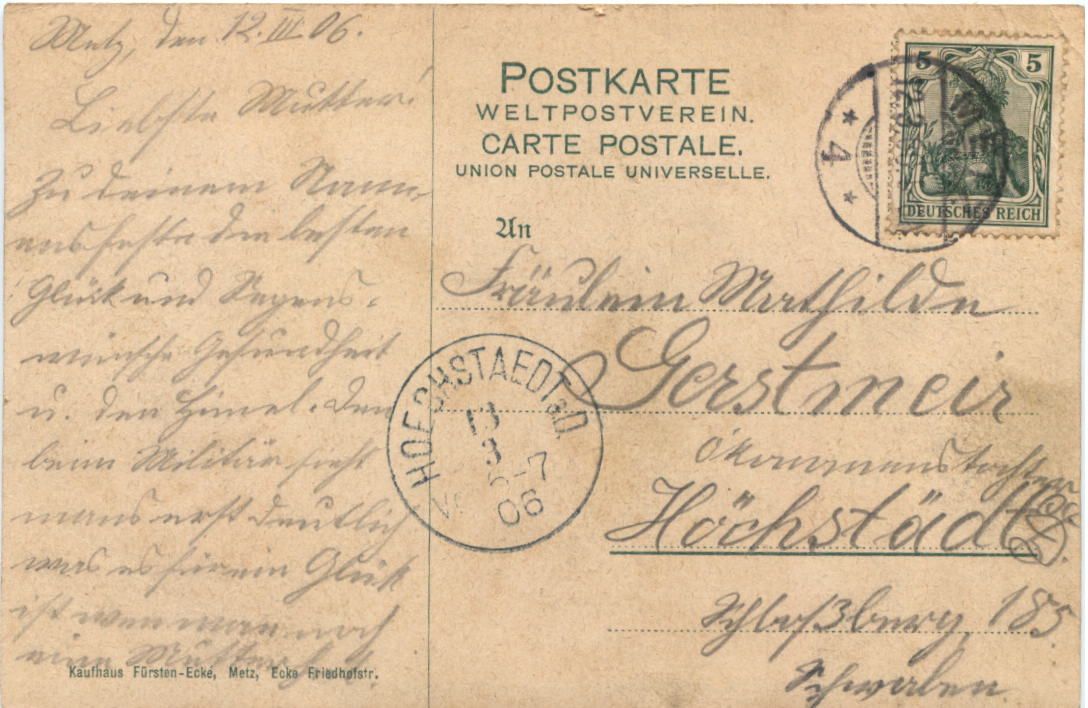 Metz, den 12. III. 06.
Liebste Mutter!
Zu deinem Namm-
ensfeste die besten
Glück und Segens-
wünsche Gesundheit
u. den Himel. Den
beim Militär sieht
mans erst deutlich
was es für ein Glück
ist wen man noch
eine Mutter hat.
Kaufhaus Fürsten-Ecke, Metz, Ecke Friedhofstr.
POSTKARTE
WELTPOSTVEREIN.
CARTE POSTALE.
UNION POSTALE UNIVERSELLE.
5 5
DEUTSCHES REICH
* 4 *
An
Fräulein Mathilde
Gerstmeir
Ökonomenstochter
Höchstädt
Schloßberg 185
Schwaben.
HOECHSTAEDT a.D.
13
3
-7
06